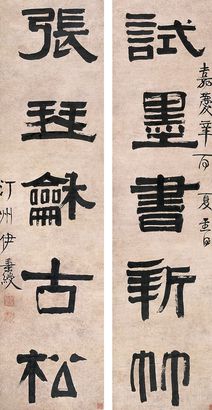 嘉慶辛酉夏至日
試墨書新竹
張琴龢古松
汀州伊秉綬